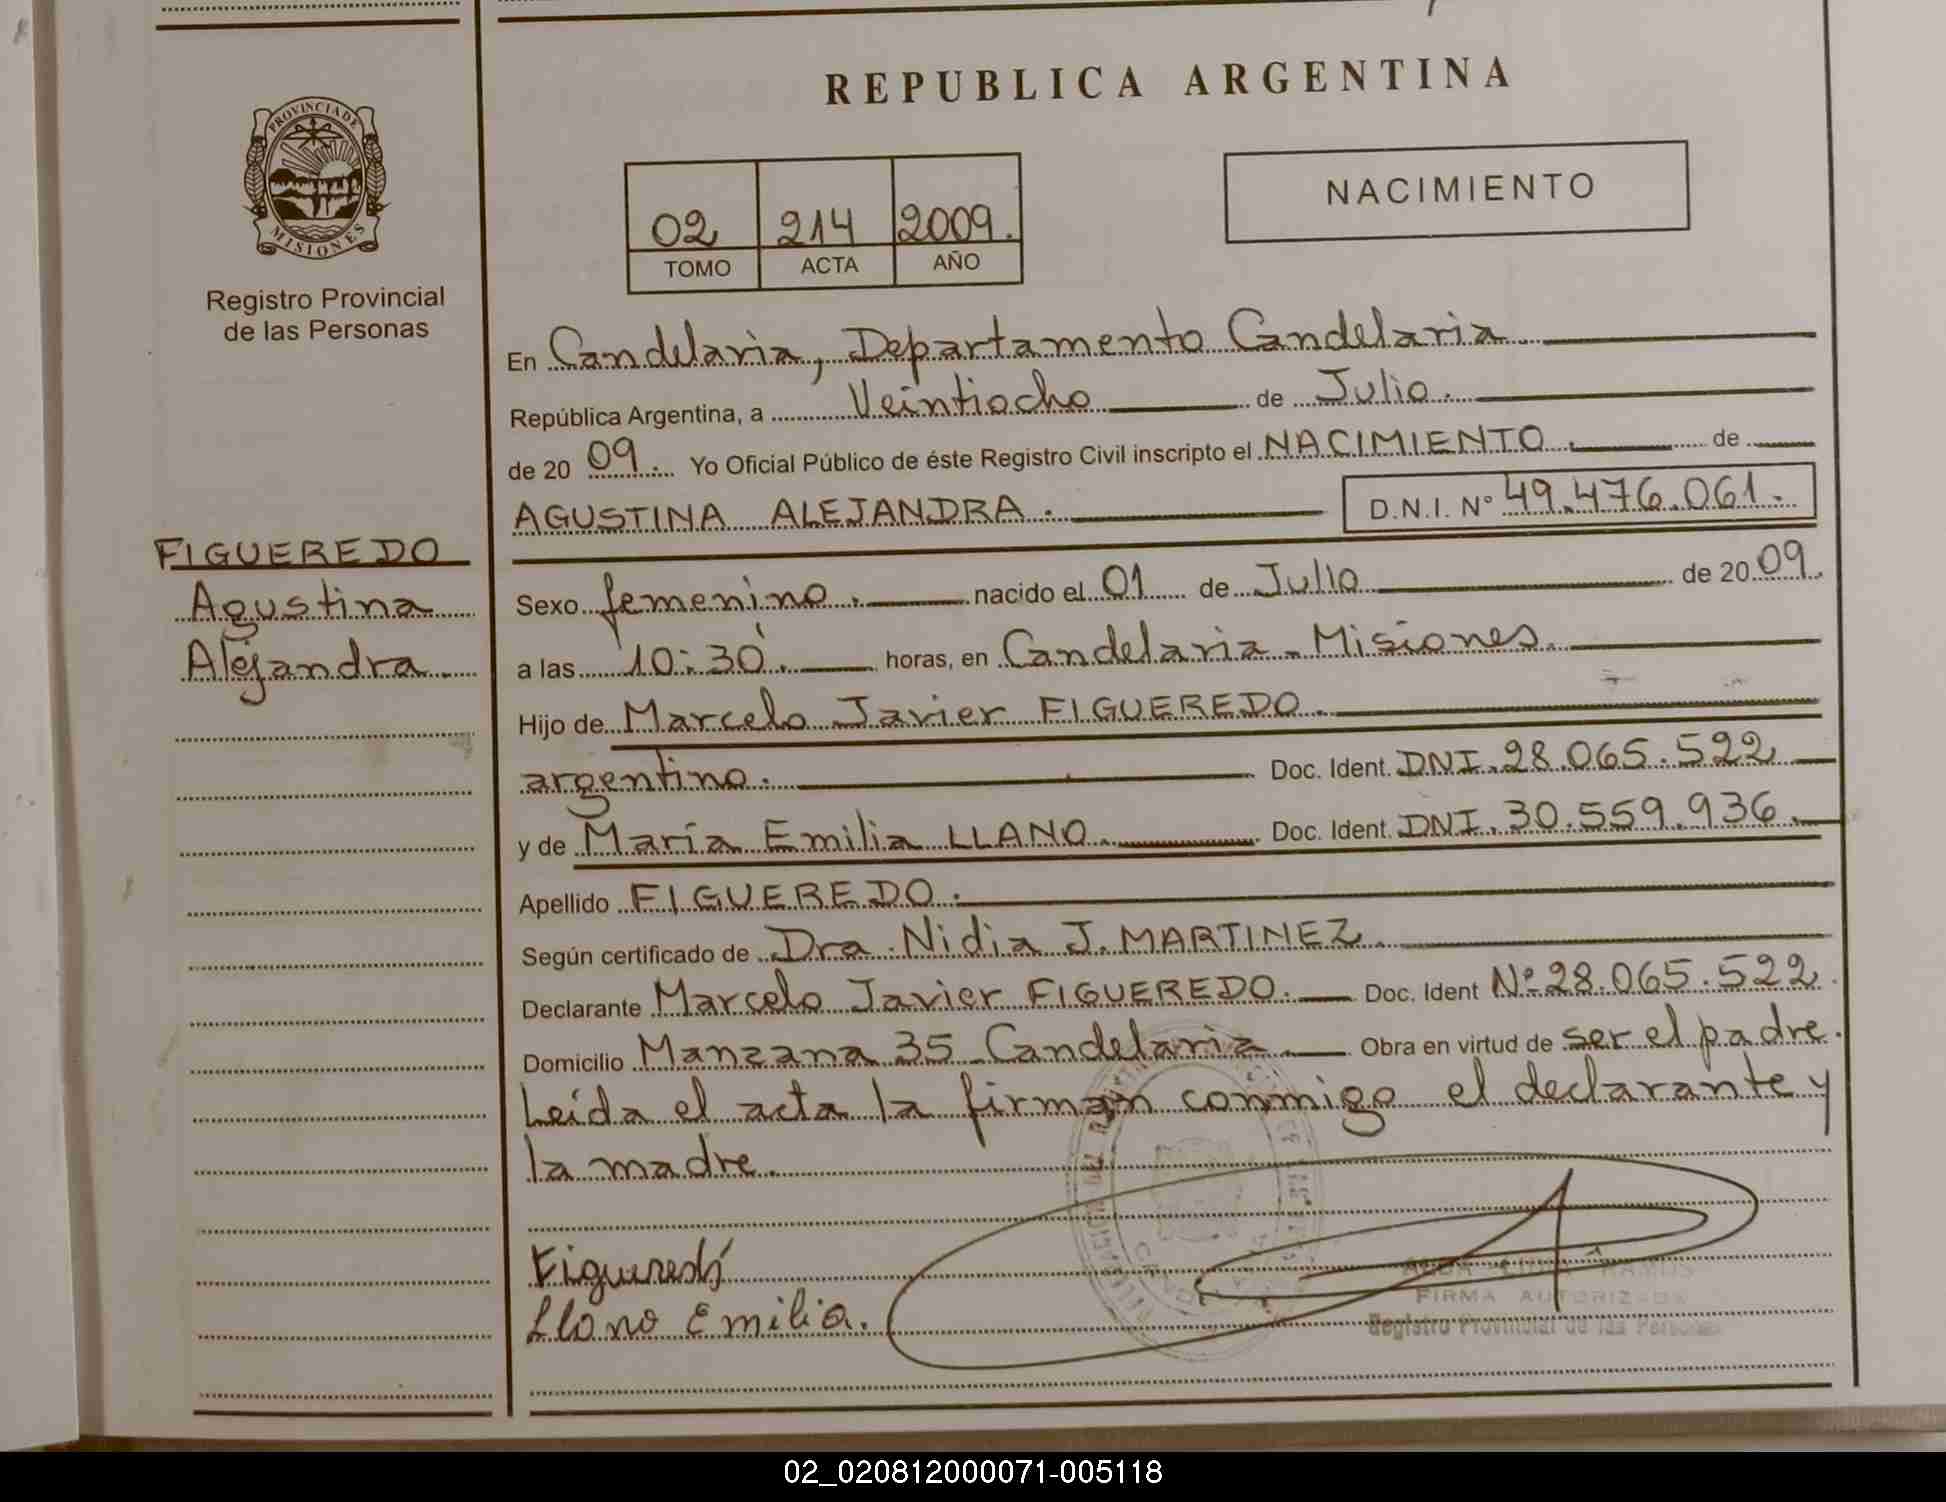 REPUBLICA ARGENTINA
PROVINCIA DE
MISIONES
Registro Provincial
de las Personas
NACIMIENTO
02 214 2009.
TOMO ACTA AÑO
En Candelaria, Departamento Candelaria.
República Argentina, a Veintiocho de Julio.
de 20 09. Yo Oficial Público de éste Registro Civil inscripto el NACIMIENTO. de
AGUSTINA ALEJANDRA. D.N.I. Nº 49.476.061.
FIGUEREDO
Agustina
Alejandra.
Sexo femenino. nacido el 01 de Julio de 20 09.
a las 10:30'. horas, en Candelaria - Misiones.
Hijo de Marcelo Javier FIGUEREDO.
argentino. Doc. Ident. DNI. 28.065.522
y de María Emilia LLANO. Doc. Ident. DNI. 30.559.936.
Apellido FIGUEREDO.
Según certificado de Dra. Nidia J. MARTINEZ.
Declarante Marcelo Javier FIGUEREDO. Doc. Ident Nº 28.065.522.
Domicilio Manzana 35 - Candelaria. Obra en virtud de ser el padre.
Leída el acta la firman conmigo el declarante y
la madre.
Llano Emilia.
RAMOS
FIRMA AUTORIZADA
Registro Provincial de las Personas
02_020812000071-005118